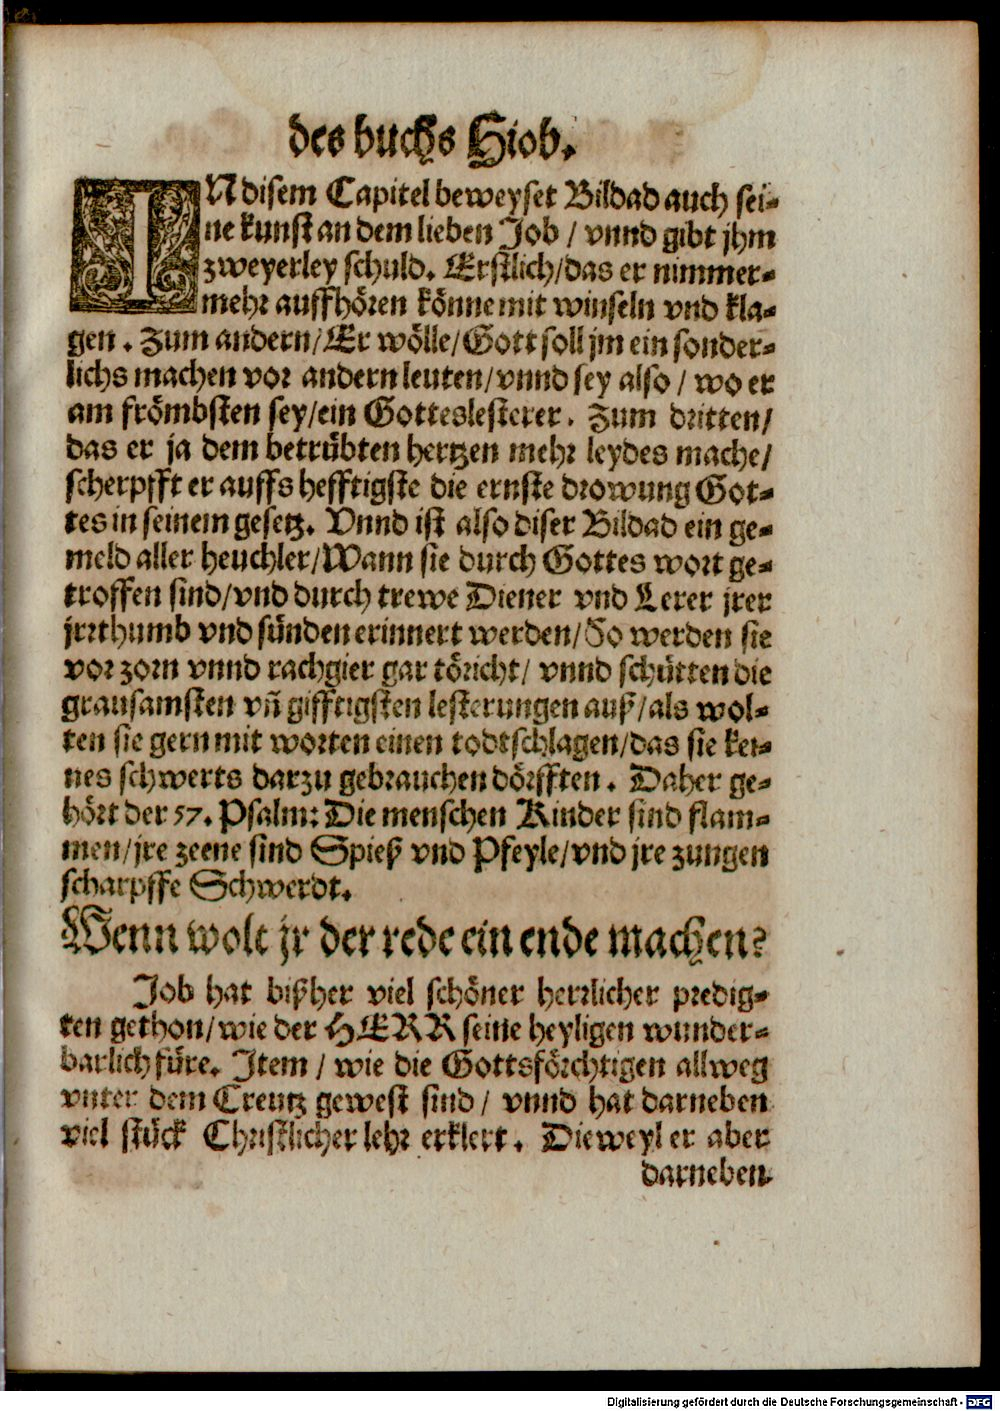 des buchs Hiob.
IN disem Capitel beweyset Bildad auch sei-
ne kunst an dem lieben Job / vnnd gibt jhm
zweyerley schuld. Erstlich/das er nimmer-
mehr auffhören könne mit winseln vnd kla-
gen. Zum andern/Er wölle/Gott soll jm ein sonder-
lichs machen vor andern leuten/vnnd sey also / wo er
am frömbsten sey/ein Gotteslesterer. Zum dritten/
das er ja dem betrübten hertzen mehr leydes mache/
scherpfft er auffs hefftigste die ernste drowung Got-
tes in seinem gesetz. Vnnd ist also diser Bildad ein ge-
meld aller heuchler/Wann sie durch Gottes wort ge-
troffen sind/vnd durch trewe Diener vnd Lerer jrer
jrrthumb vnd sünden erinnert werden/So werden sie
vor zorn vnnd rachgier gar töricht/ vnnd schütten die
grausamsten vñ gifftigsten lesterungen auß/als wol-
ten sie gern mit worten einen todtschlagen/das sie kei-
nes schwerts darzu gebrauchen dörfften. Daher ge-
hört der 57. Psalm: Die menschen Kinder sind flam-
men/jre zeene sind Spieß vnd Pfeyle/vnd jre zungen
scharpffe Schwerdt.
Wenn wolt jr der rede ein ende machen?
Job hat bißher viel schöner herrlicher predig-
ten gethon/wie der HERR seine heyligen wunder-
barlich füre. Item / wie die Gottsförchtigen allweg
vnter dem Creutz gewest sind / vnnd hat darneben
viel stück Christlicher lehr erklert. Dieweyl er aber
darneben
Digitalisierung gefördert durch die Deutsche Forschungsgemeinschaft - DFG